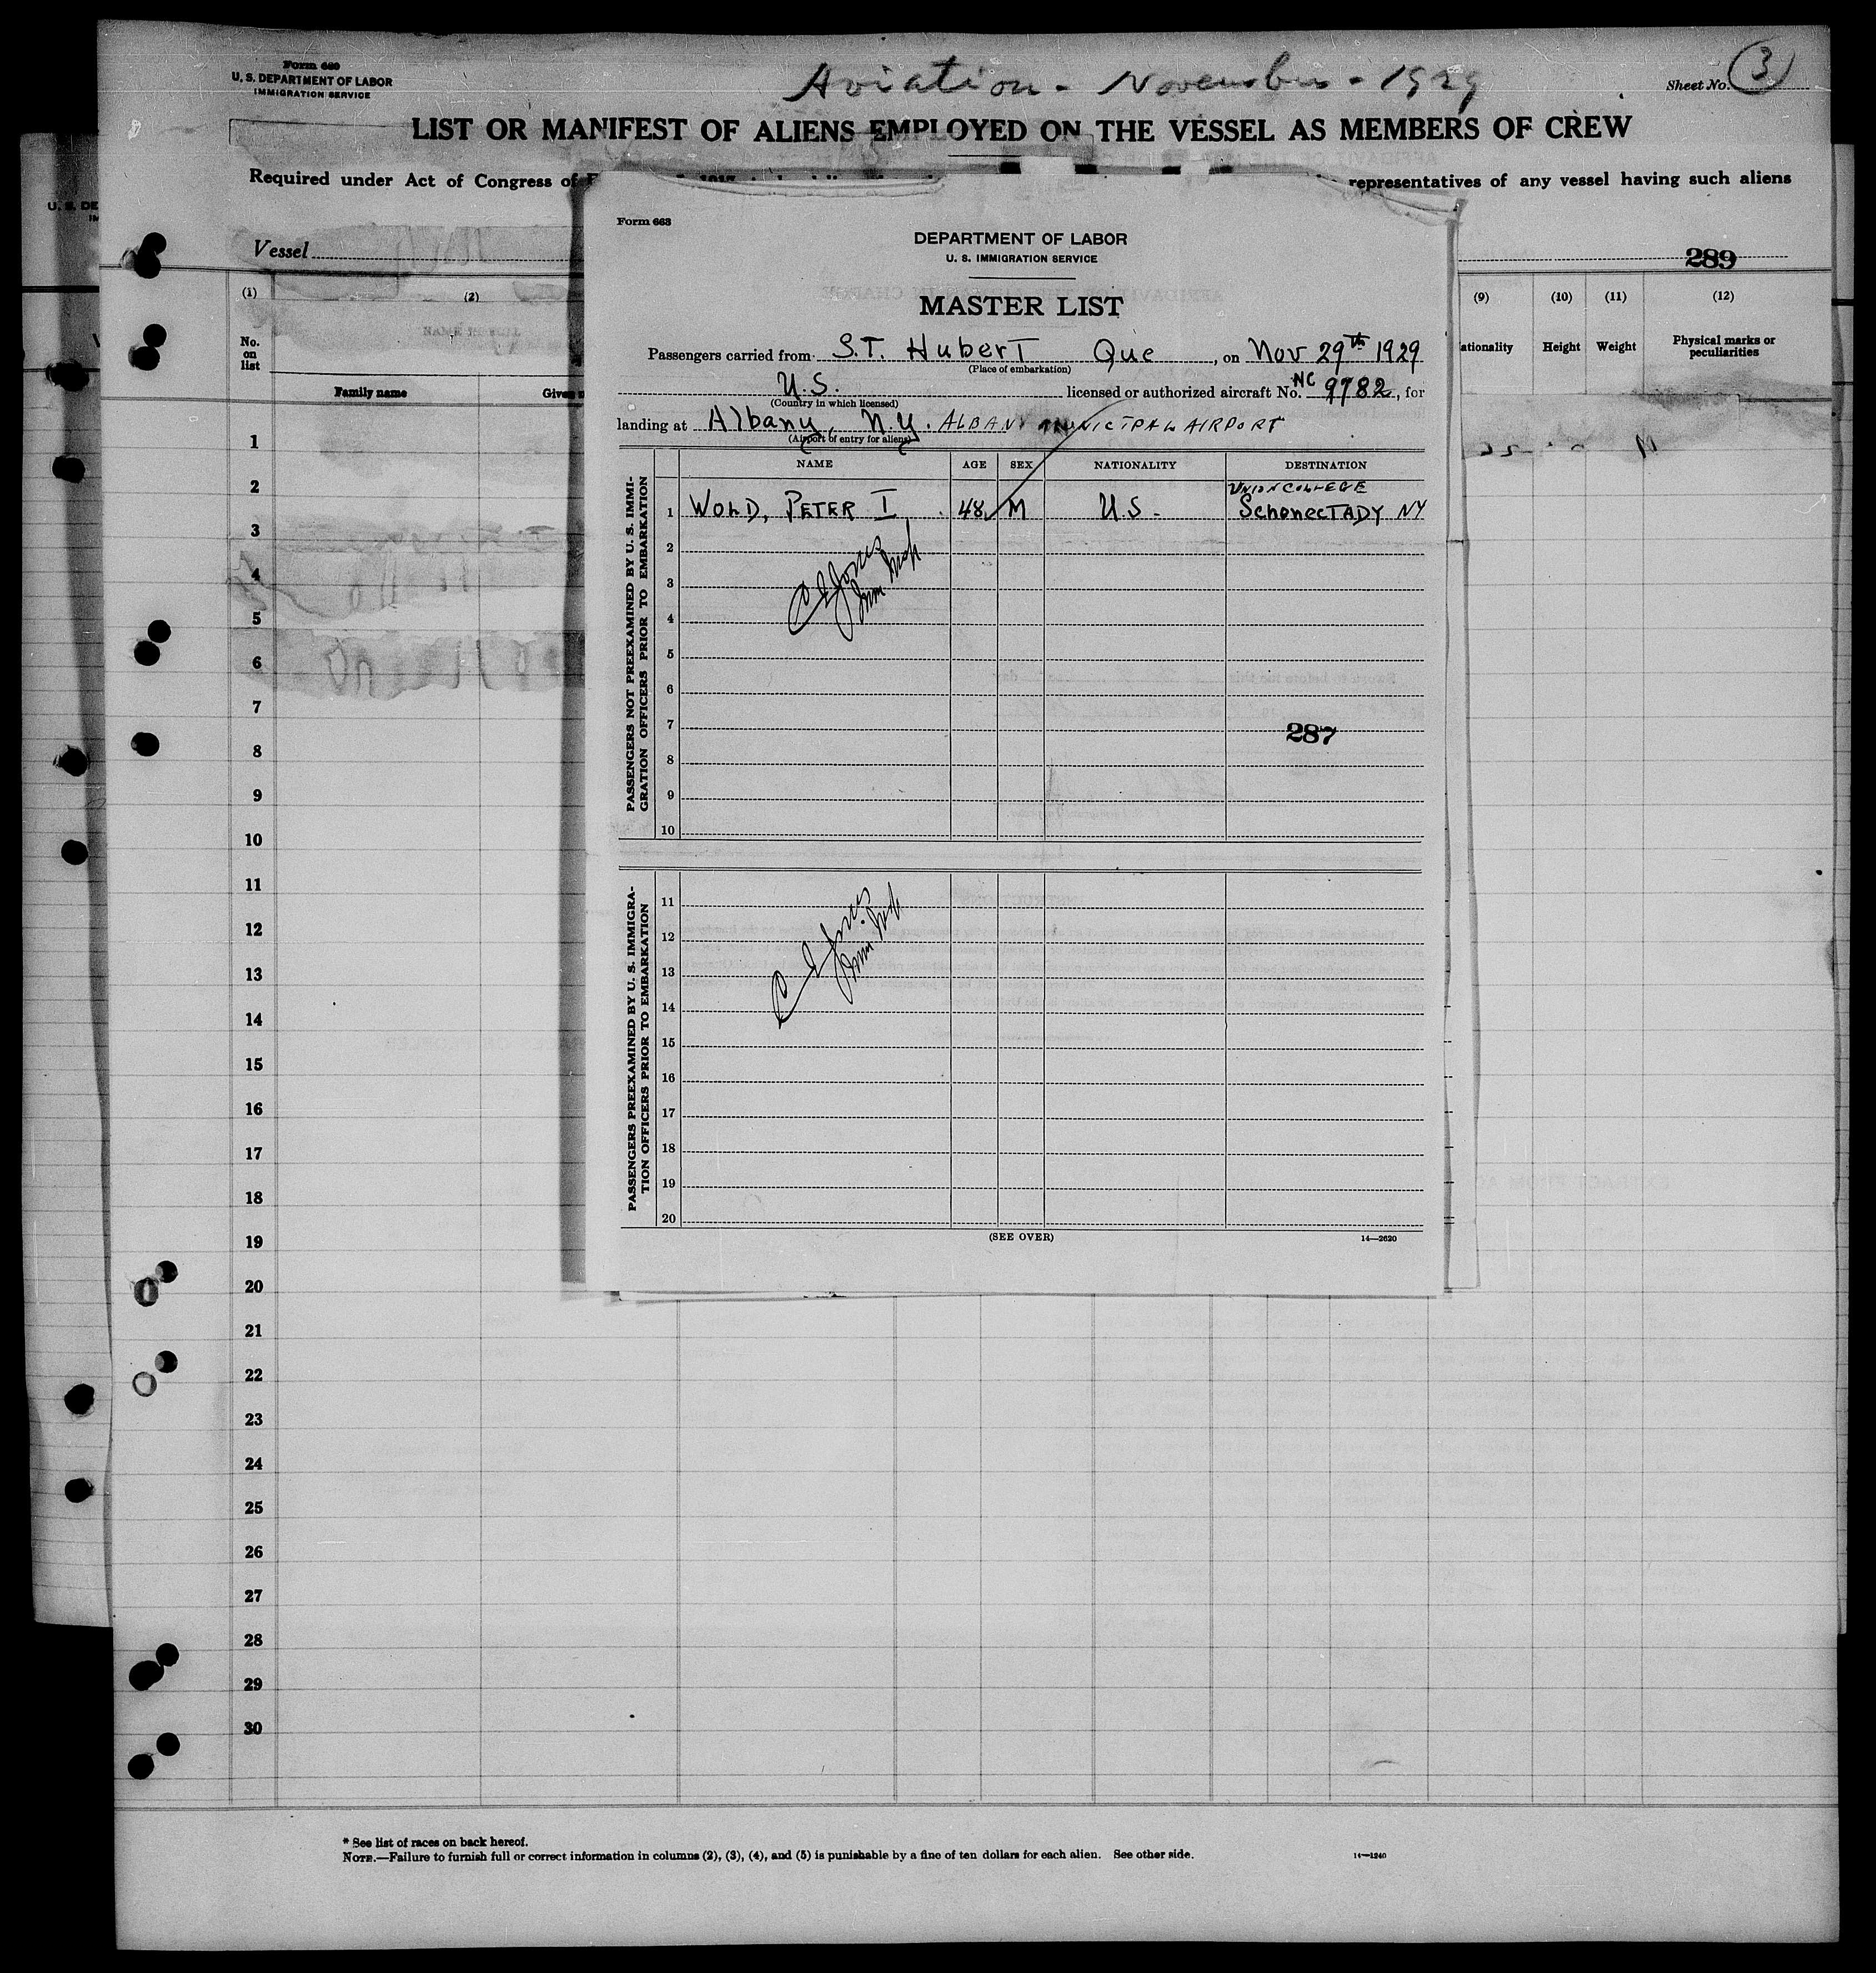 Form 680
U. S. DEPARTMENT OF LABOR
IMMIGRATION SERVICE
Aviation - November - 1929
Sheet No. 3
LIST OR MANIFEST OF ALIENS EMPLOYED ON THE VESSEL AS MEMBERS OF CREW
Required under Act of Congress of
representatives of any vessel having such aliens
U. S. DE
Vessel
289
(1) (2) (9) (10) (11) (12)
No. on list
Family name
Given
ationality Height Weight Physical marks or peculiarities
Form 663
DEPARTMENT OF LABOR
U. S. IMMIGRATION SERVICE
MASTER LIST
Passengers carried from S.T. HuberT Que, on Nov 29th 1929
(Place of embarkation)
U.S. licensed or authorized aircraft No. NC 9782, for
(Country in which licensed)
landing at Albany, N.Y. ALBANY MUNICIPAL AIRPORT
(Airport of entry for aliens)
NAME AGE SEX NATIONALITY DESTINATION
PASSENGERS NOT PREEXAMINED BY U. S. IMMI-
GRATION OFFICERS PRIOR TO EMBARKATION
UNION COLLEGE
1 WOLD, PETER I. 48 M U.S. SchenecTADY NY
2
3
4
5
6
7
287
8
9
10
C I Jones
Imm Insp
PASSENGERS PREEXAMINED BY U. S. IMMIGRA-
TION OFFICERS PRIOR TO EMBARKATION
11
12
13
14
15
16
17
18
19
20
C I Jones
Imm Insp
(SEE OVER)
14—2620
1
2
3
4
5
6
7
8
9
10
11
12
13
14
15
16
17
18
19
20
21
22
23
24
25
26
27
28
29
30
* See list of races on back hereof.
NOTE.—Failure to furnish full or correct information in columns (2), (3), (4), and (5) is punishable by a fine of ten dollars for each alien. See other side.
14—1240